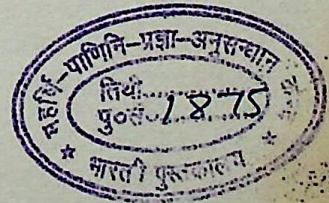 महर्षि-पाणिनि-प्रज्ञा-अनुसन्धान
तिथी..............
पु०सं० 1875
भारती पुस्तकालय